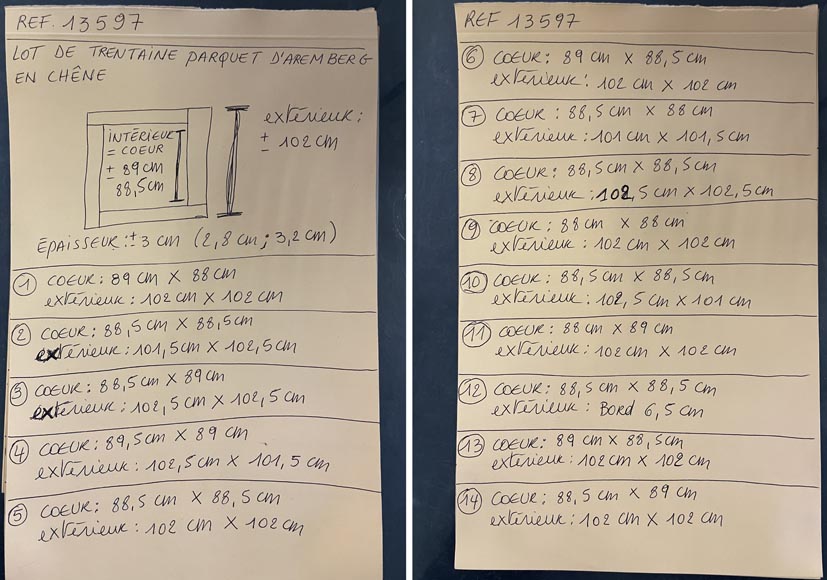 REF. 13597
LOT DE TRENTAINE PARQUET D'AREMBERG
EN CHÊNE
INTÉRIEUR
= COEUR
± 89 cm
88,5cm
extérieur :
± 102 cm
ÉPAISSEUR : ± 3 cm (2,8 cm ; 3,2 cm)
1 COEUR : 89 cm X 88 cm
extérieur : 102 cm X 102 cm
2 COEUR : 88,5 cm X 88,5 cm
extérieur : 101,5 cm X 102,5 cm
3 COEUR : 88,5 cm X 89 cm
extérieur : 102,5 cm X 102,5 cm
4 COEUR : 89,5 cm X 89 cm
extérieur : 102,5 cm X 101,5 cm
5 COEUR : 88,5 cm X 88,5 cm
extérieur : 102 cm X 102 cm
REF 13597
6 COEUR : 89 cm X 88,5 cm
extérieur : 102 cm X 102 cm
7 COEUR : 88,5 cm X 88 cm
extérieur : 101 cm X 101,5 cm
8 COEUR : 88,5 cm X 88,5 cm
extérieur : 102,5 cm X 102,5 cm
9 COEUR : 88 cm X 88 cm
extérieur : 102 cm X 102 cm
10 COEUR : 88,5 cm X 88,5 cm
extérieur : 102,5 cm X 101 cm
11 COEUR : 88 cm X 89 cm
extérieur : 102 cm X 102 cm
12 COEUR : 88,5 cm X 88,5 cm
extérieur : Bord 6,5 cm
13 COEUR : 89 cm X 88,5 cm
extérieur : 102 cm X 102 cm
14 COEUR : 88,5 cm X 89 cm
extérieur : 102 cm X 102 cm